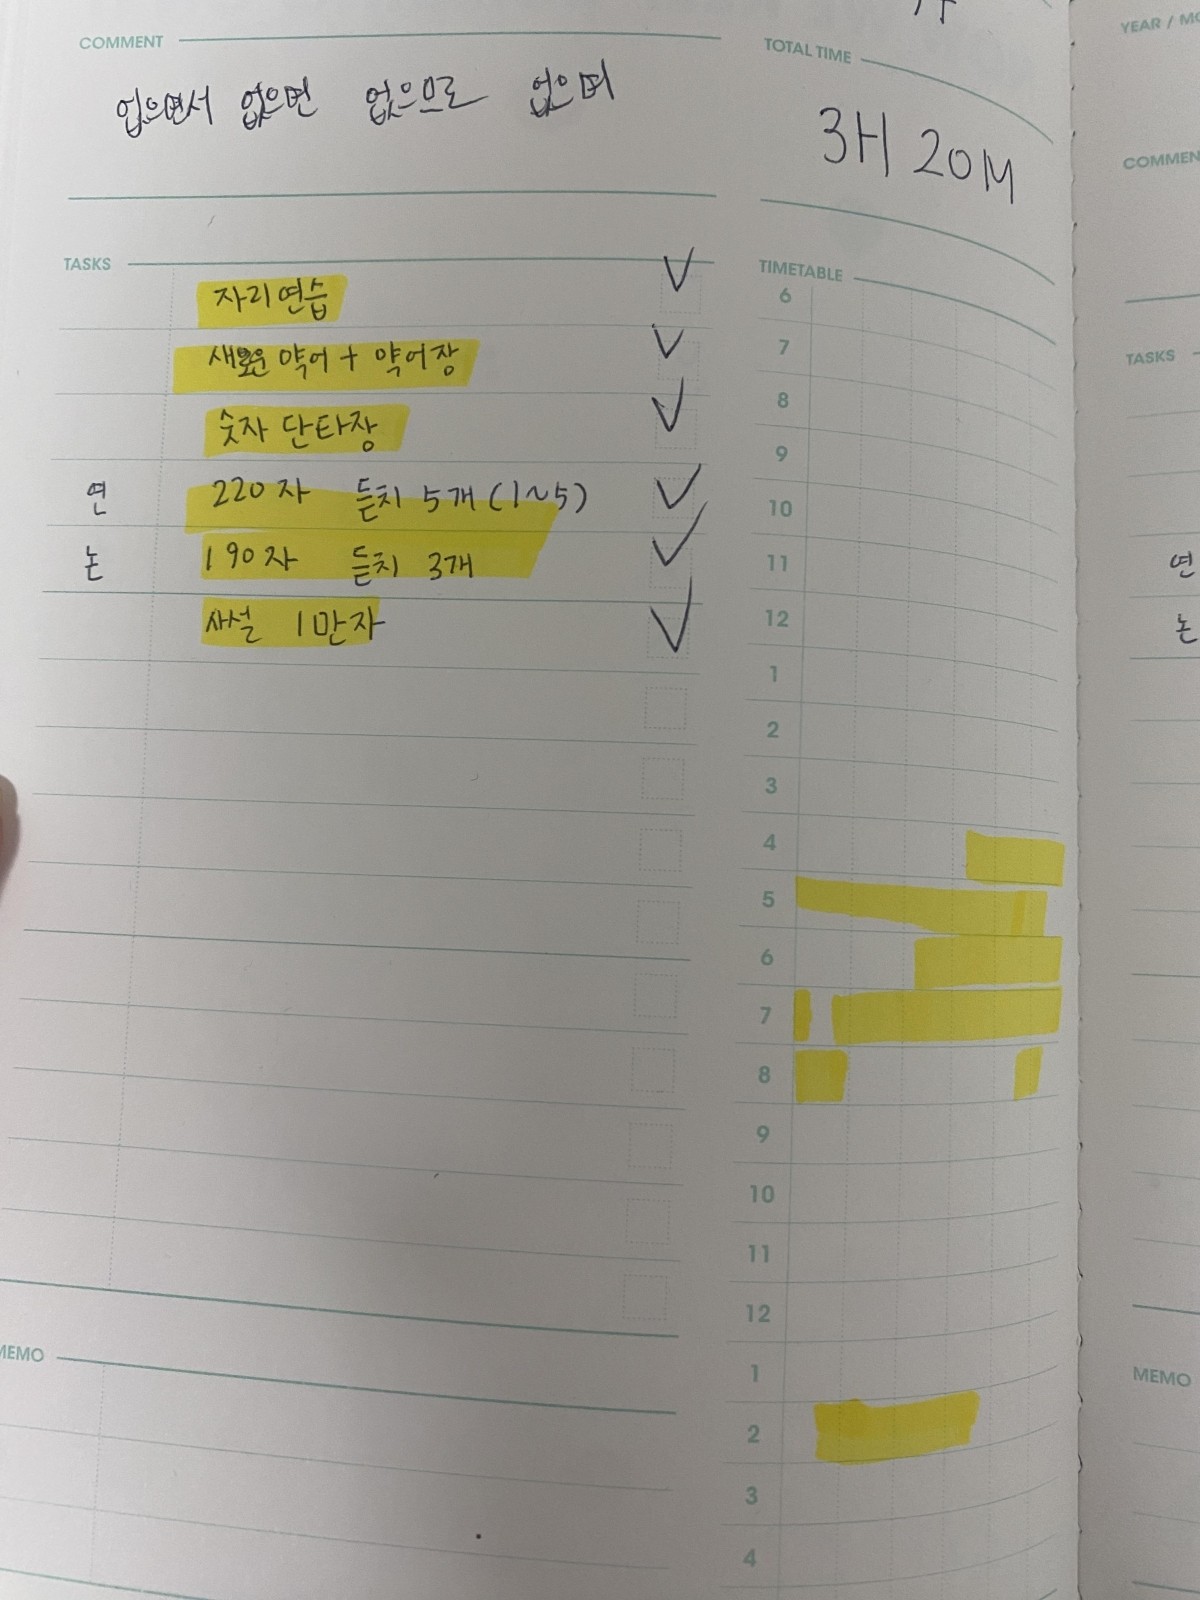 COMMENT
없으면서 없으면 없으므로 없으며
TOTAL TIME
3H 20M
TASKS
자리연습
새로운 약어 + 약어장
숫자 단타장
연 220자 듣치 5개 (1~5)
논 190자 듣치 3개
사설 1만자
TIMETABLE
6
7
8
9
10
11
12
1
2
3
4
5
6
7
8
9
10
11
12
1
2
3
4
MEMO
YEAR / MO
COMMEN
TASKS
연
논
MEMO